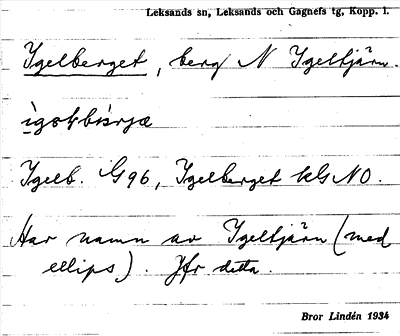 Leksands sn, Leksands och Gagnefs tg, Kopp. l.
Ygelberget, berg N Ygeltjärn.
Ygelb. G96, Ygelberget kG NO.
Har namn av Ygeltjärn (med
ellips). Jfr detta.
Bror Lindén 1934